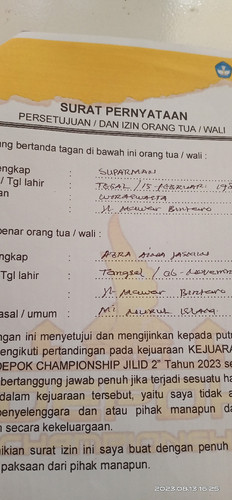 SURAT PERNYATAAN
PERSETUJUAN / DAN IZIN ORANG TUA / WALI
ng bertanda tagan di bawah ini orang tua / wali :
engkap : SUPARMAN
/ Tgl lahir : TEGAL / 15 FEBRUARI 19
an : WIRASWASTA
: Jl. Mawar Bintaro
benar orang tua / wali :
ngkap : AZRA
Tgl lahir : Tangsel / 06 - November
: Jl. Mawar Bintaro
asal / umum : MI NURUL ISLAM
ngan ini menyetujui dan mengijinkan kepada putr
engikuti pertandingan pada kejuaraan KEJUARA
DEPOK CHAMPIONSHIP JILID 2" Tahun 2023 se
bertanggung jawab penuh jika terjadi sesuatu ha
dalam kejuaraan tersebut, yaitu saya tidak a
penyelenggara dan atau pihak manapun da
n secara kekeluargaan.
ikian surat izin ini saya buat dengan penuh
paksaan dari pihak manapun.
2023-08-13 16:25